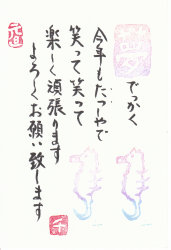 夢
でっかく
今年もたつ年やで
笑って笑って
楽しく頑張ります
よろしくお願い致します
元旦